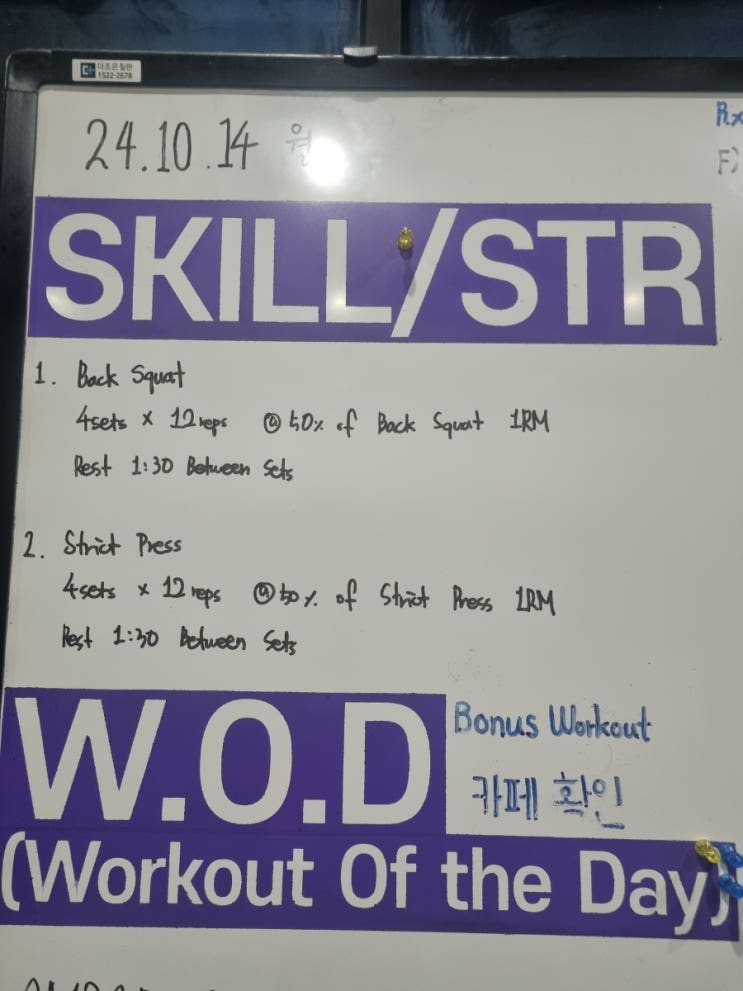 더조은칠판
1522-2678
24.10.14 월
Rx
F)
SKILL/STR
1. Back Squat
4sets x 12reps @ 50% of Back Squat 1RM
Rest 1:30 Between Sets
2. Strict Press
4sets x 12reps @ 50% of Strict Press 1RM
Rest 1:30 Between Sets
W.O.D
Bonus Workout
카페 확인
(Workout Of the Day)